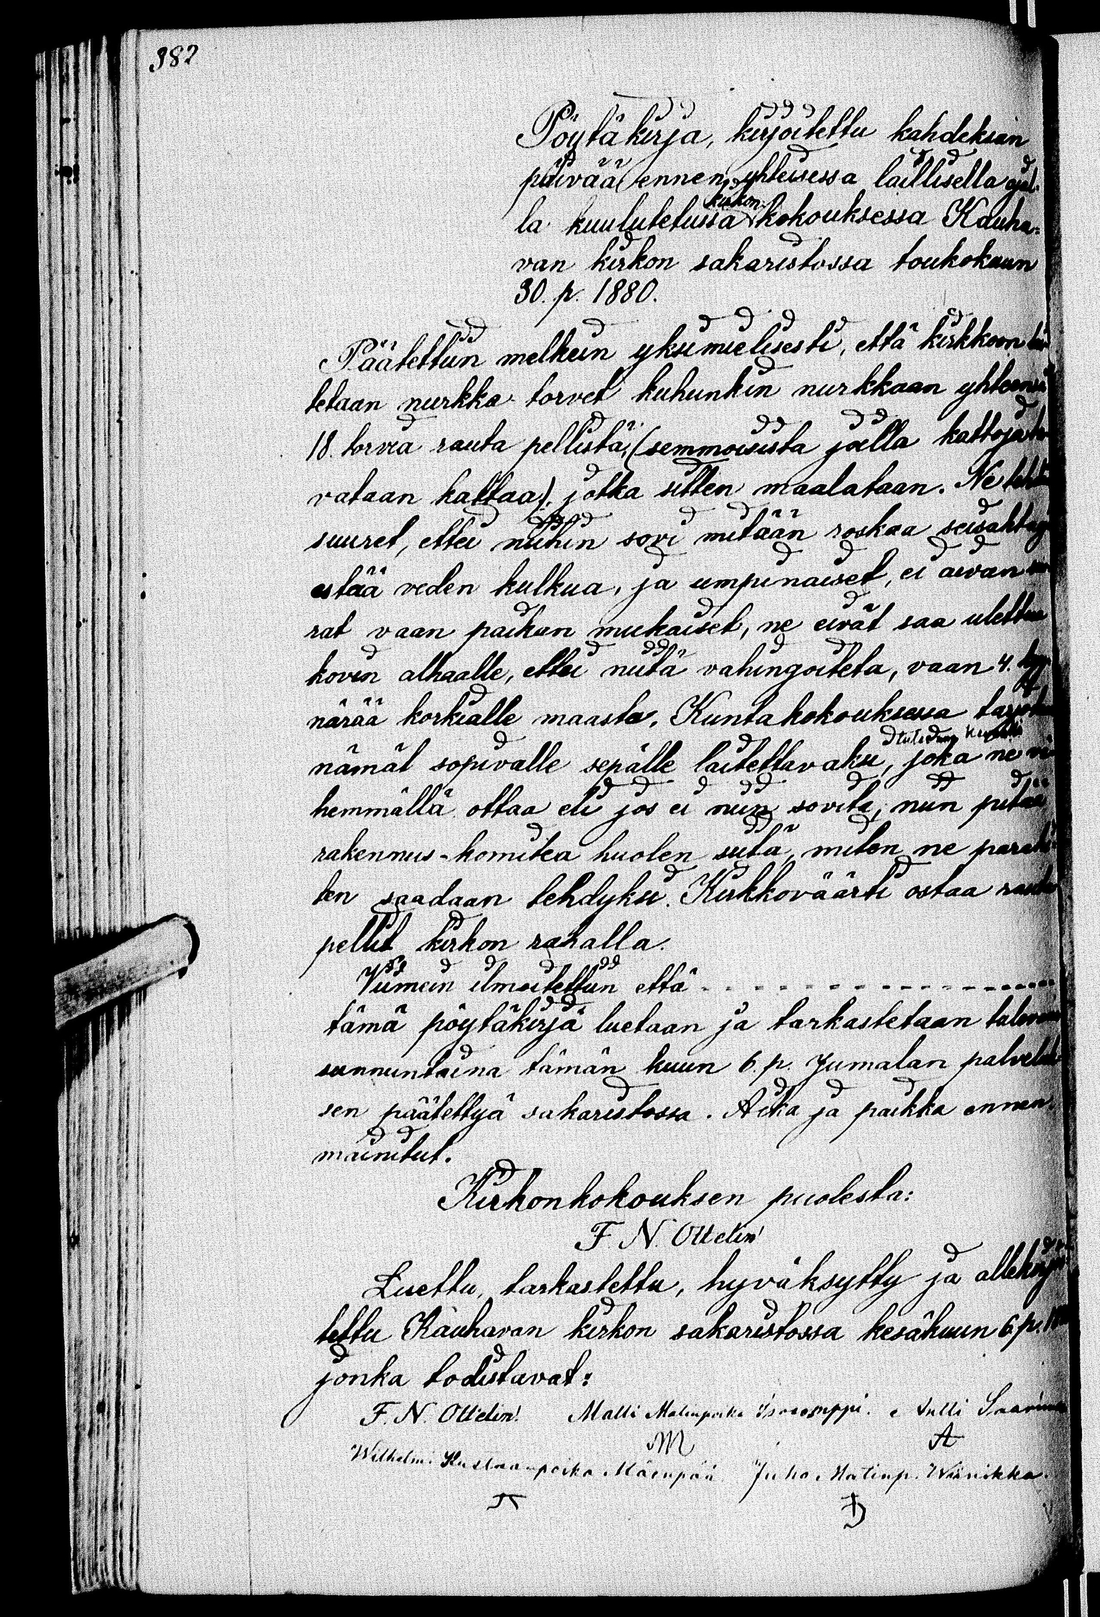 382
Pöytäkirja, kirjoitettu kahdeksan
päivää ennen yhteisessa laillisella ajal-
kirkon-
la kuulutetussa kokouksessa Kauha-
van kirkon sakaristossa toukokuun
30. p. 1880.
Päätettiin melkein yksimielisesti, että kirkkoon
tetaan nurkka-torvet kuhunkin nurkkaan yhteensä
18 torvea rauta pellistä, (semmoisista joilla kattoja
vataan kattaa), jotka sitten maalataan. Ne
suuret, ettei niihin sovi mitään roskaa seisahtaa
estää veden kulkua, ja umpinaiset, ei aivan
rat vaan paikan mukaiset, ne eivät saa ulettua
kovin alhaalle, ettei niitä vahingoiteta, vaan 4. kyy-
närää korkialle maasta. Kuntakokouksessa
nämät sopivalle sepälle laitettavaksi, joka ne
hemmällä ottaa eli jos ei niin sovita, niin pitää
rakennus-komitea huolen siitä, miten ne parahi-
ten saadaan tehdyksi. Kirkkoväärti ostaa rauta
pellit kirkon rahalla.
Viimein ilmoitettiin että
tämä pöytäkirja luetaan ja tarkastetaan
sunnuntaina tämän kuun 6. p. Jumalan palveluk-
sen päätettyä sakaristossa. Aika ja paikka ennen-
mainitut.
Kirkonkokouksen puolesta:
F. N. Ottelin
Luettu, tarkastettu, hyväksytty ja allekirjoi-
tettu Kauhavan kirkon sakaristossa kesäkuun 6. p.
jonka todistavat:
F. N. Ottelin. Matti Matinpoika Antti
M A
Wilhelm Kustaanpoika Mäenpää Juho Matinp.